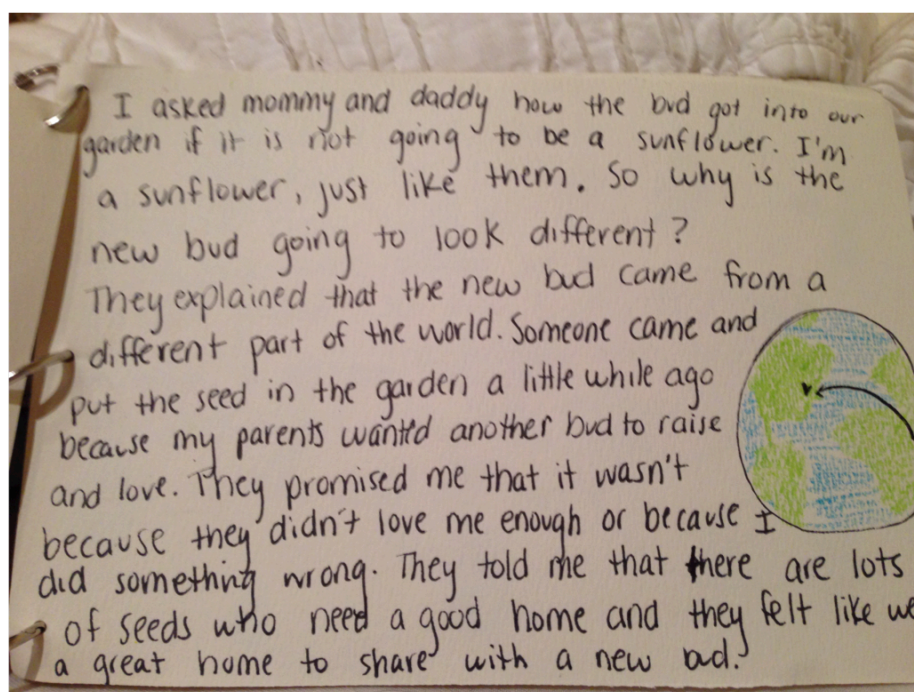 I asked mommy and daddy how the bud got into our
garden if it is not going to be a sunflower. I'm
a sunflower, just like them. So why is the
new bud going to look different?
They explained that the new bud came from a
different part of the world. Someone came and
put the seed in the garden a little while ago
because my parents wanted another bud to raise
and love. They promised me that it wasn't
because they didn't love me enough or because I
did something wrong. They told me that there are lots
of seeds who need a good home and they felt like we
a great home to share with a new bud.